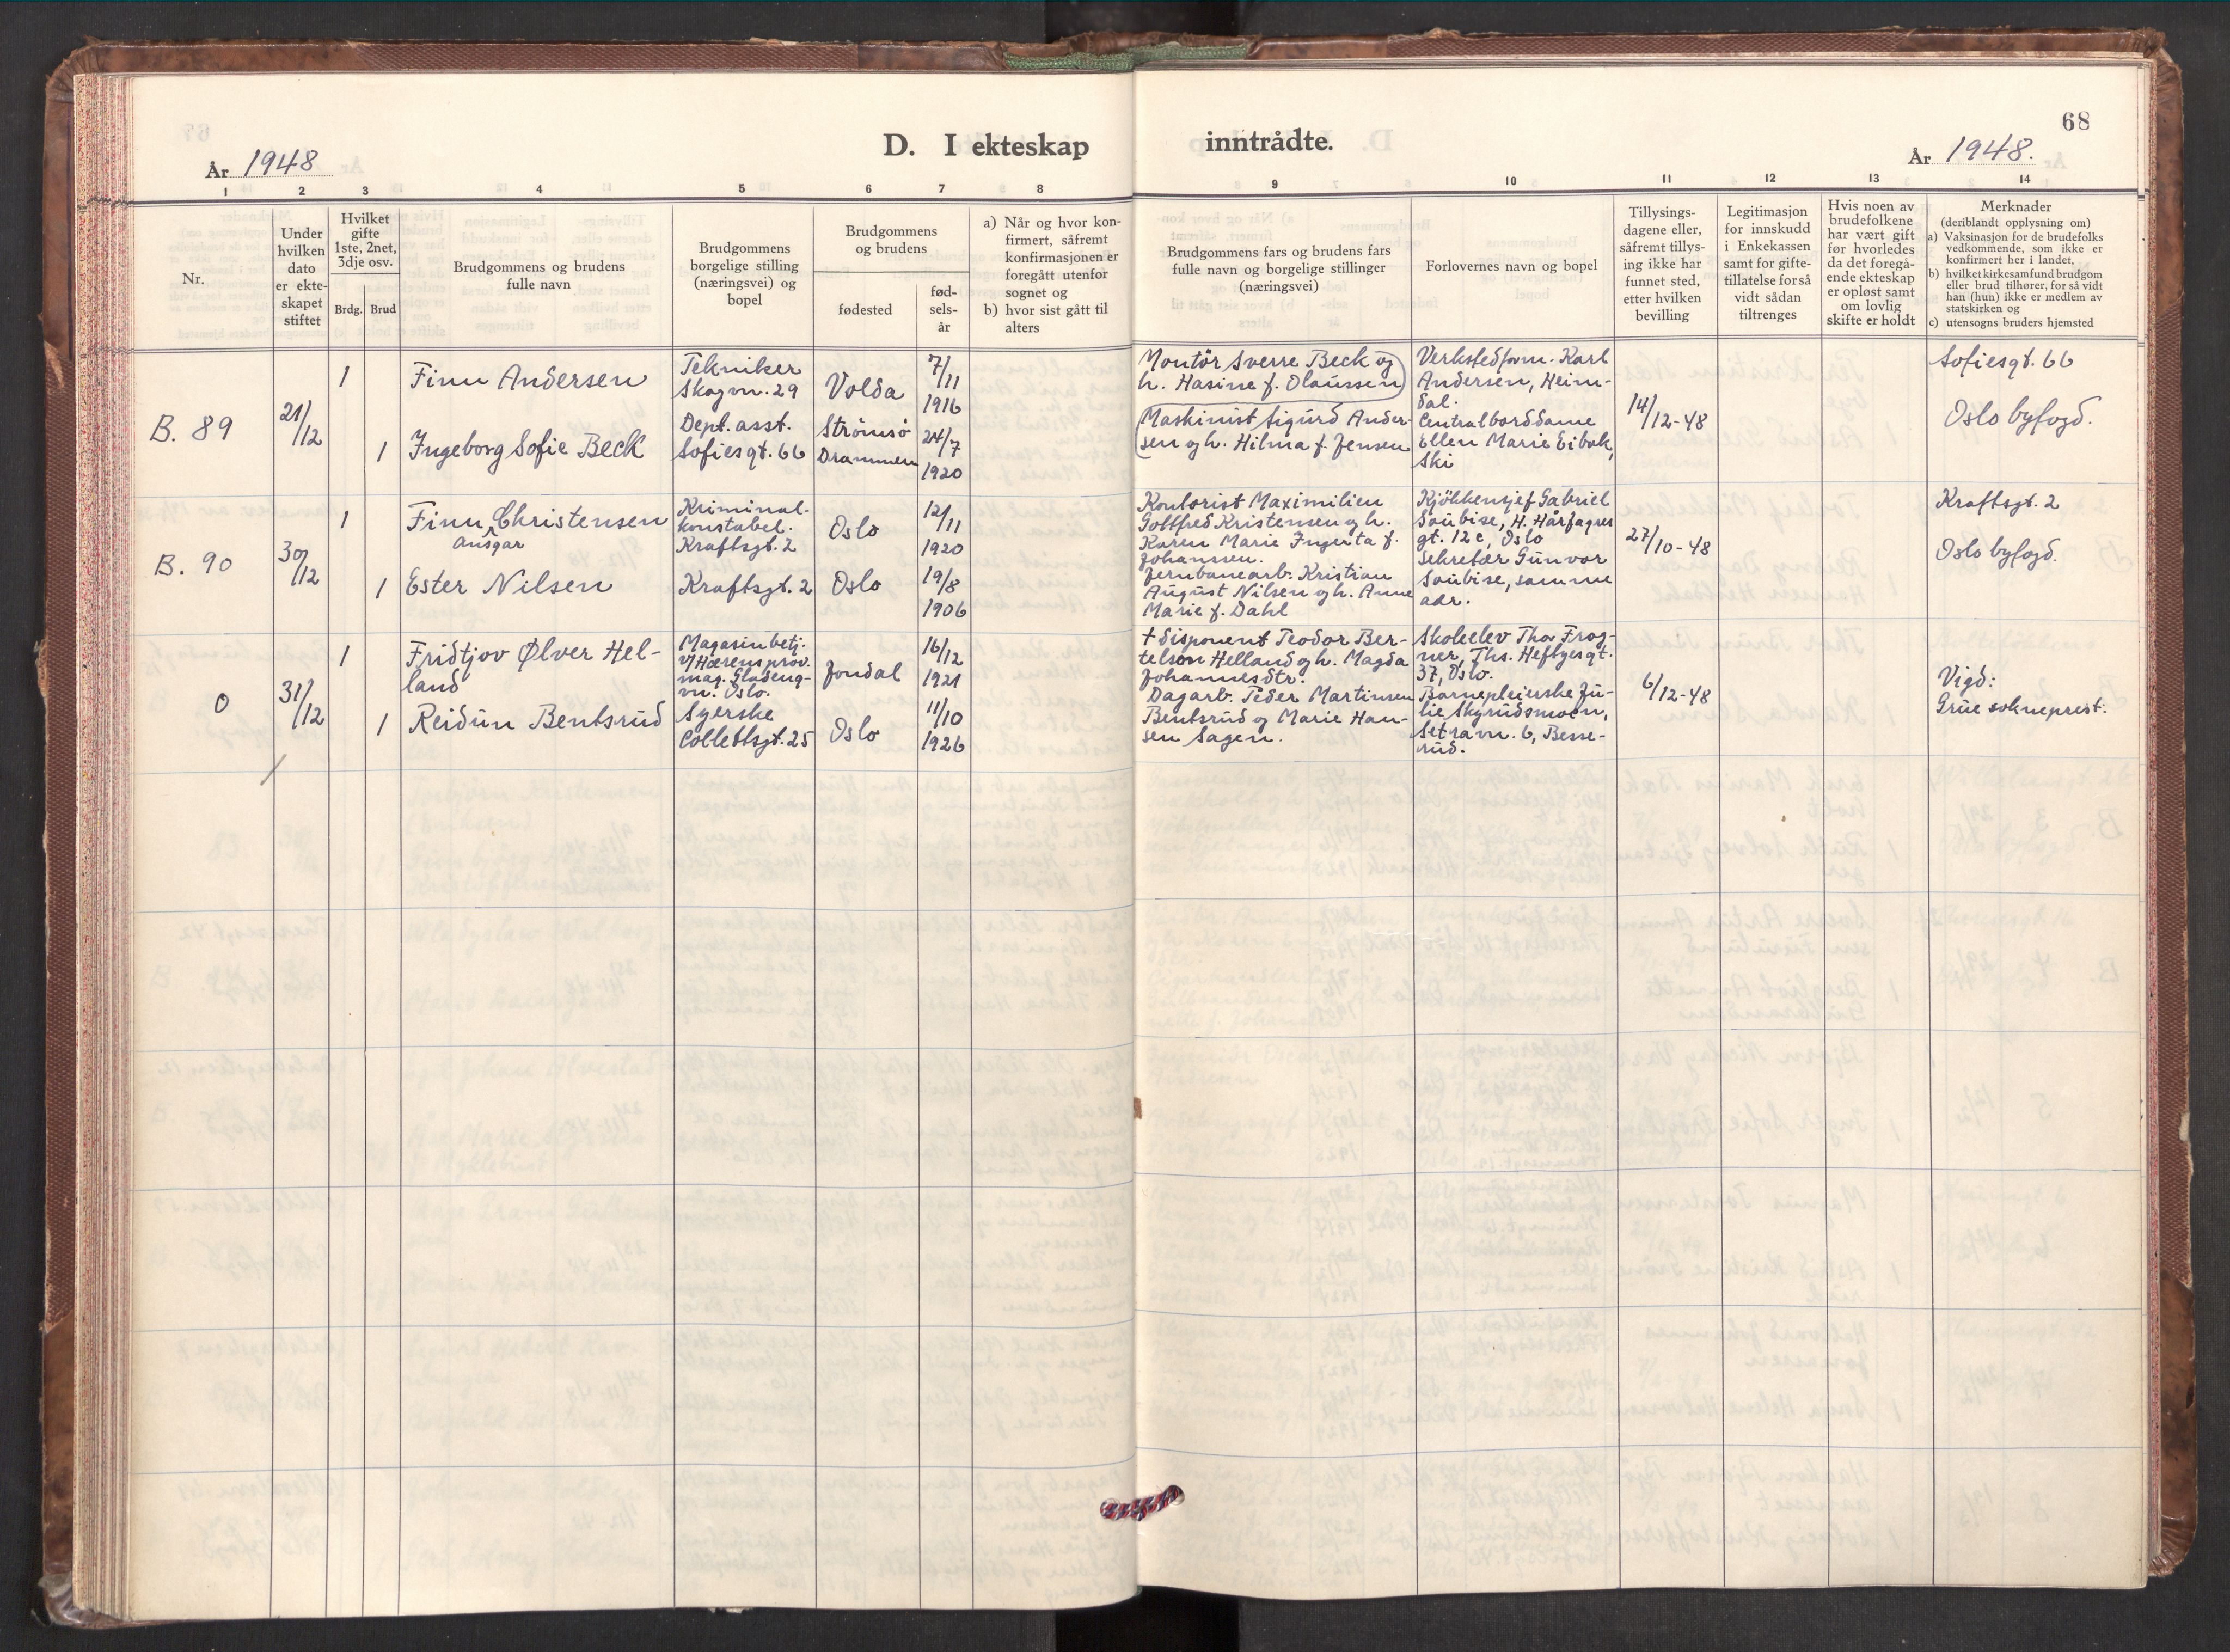 68
D. I ekteskap inntrådte.
År 1948
År 1948.
1 2 3 4 5 6 7 8 9 10 11 12 13 14
Nr.
Under
hvilken
dato
er ekte-
skapet
stiftet
Hvilket
gifte
1ste, 2net,
3dje osv.
Brdg. Brud
Brudgommens og brudens
fulle navn
Brudgommens
borgelige stilling
(næringsvei) og
bopel
Brudgommens
og brudens
fødested
fød-
sels-
år
a) Når og hvor kon-
firmert, såfremt
konfirmasjonen er
foregått utenfor
sognet og
b) hvor sist gått til
alters
Brudgommens fars og brudens fars
fulle navn og borgelige stillinger
(næringsvei)
Forlovernes navn og bopel
Tillysings-
dagene eller,
såfremt tillys-
ing ikke har
funnet sted,
etter hvilken
bevilling
Legitimasjon
for innskudd
i Enkekassen
samt for gifte-
tillatelse forså
vidt sådan
tiltrenges
Hvis noen av
brudefolkene
har vært gift
før hvorledes
da det foregå-
ende ekteskap
er opløst samt
om lovlig
skifte er holdt
Merknader
(deriblandt opplysning om)
a) Vaksinasjon for de brudefolks
vedkommende, som ikke er
konfirmert her i landet,
b) hvilket kirkesamfund brudgom
eller brud tilhører, for så vidt
han (hun) ikke er medlem av
statskirken og
c) utensogns bruders hjemsted
B. 89
21/12
1
Finn Andersen
Tekniker
Skogvn. 29
Volda
7/11
1916
1
Ingeborg Sofie Beck
Dept. asst.
Sofiesgt. 66
Strømsø
Drammen
24/7
1920
Montör Sverre Beck og
h. Hasine f. Olaussen
Maskinist Sigurd Ander-
sen og h. Hilma f. Jensen
Verkstedform. Karl
Andersen, Heim-
dal.
Centralborddame
Ellen Marie Eibak,
Ski
14/12-48
Sofiesgt. 66
Oslo byfogd.
B. 90
30/12
1
Finn Christensen
Ansgar
Kriminal-
konstabel.
Kraftsgt. 2
Oslo
12/11
1920
1
Ester Nilsen
Kraftsgt. 2
Oslo
19/8
1906
Kontorist Maximilien
Gottfred Kristensen og h.
Karen Marie Ingerta f.
Johanssen.
Jernbanearb. Kristian
August Nilsen og h. Anne
Marie f. Dahl
Kjökkensjef Gabriel
Soubise, H. Hårfagres
gt. 12 c, Oslo
Sekretær Gunvor
Soubise, samme
adr.
27/10-48
Kraftsgt. 2
Oslo byfogd.
0
31/12
1
Fridtjov Ølver Hel-
land
Magasinbetj.
v/Hærens prov.
mag. Gladeng-
vn. Oslo.
Jondal
16/12
1921
1
Reidun Bentsrud
Syerske
Collettsgt. 25
Oslo
11/10
1926
† disponent Teodor Ber-
telson Helland og h. Magda
Johannesdtr.
Dagarb. Peder Martinsen
Bentsrud og Marie Han-
sen Sagen.
Skoleelev Thor Frog-
ner, Ths. Heftyesgt.
37, Oslo.
Barnepleierske Ju-
lie Skyrudsmoen,
Setravn. 6, Besse-
rud.
6/12-48
Vigd:
Grue sokneprest.